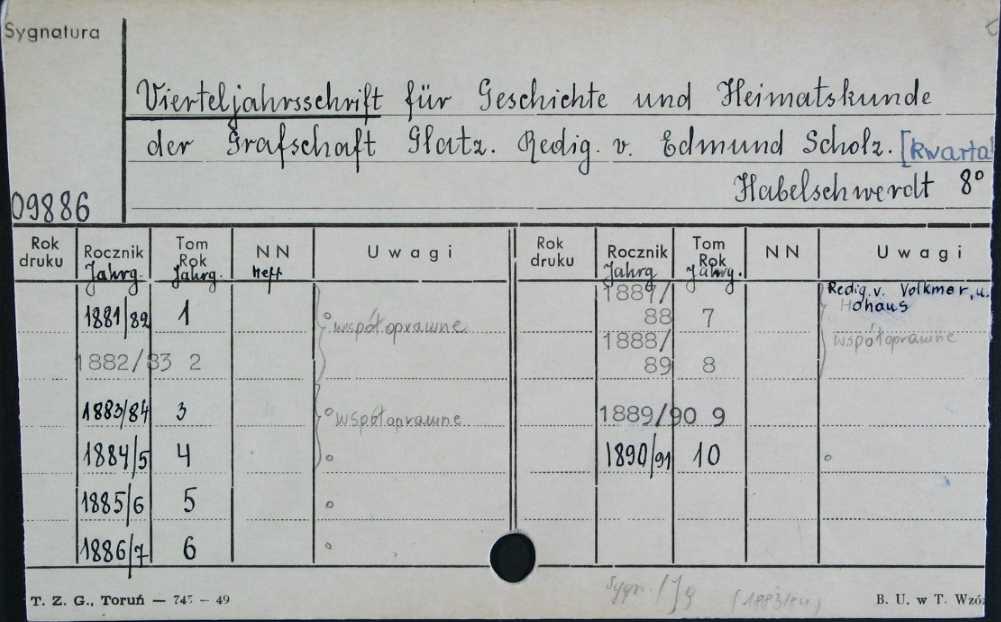 Sygnatura
Vierteljahrsschrift für Geschichte und Heimatskunde
der Grafschaft Glatz. Redig. v. Edmund Scholz. [kwartal
Habelschwerdt 8°
09886
Rok druku Rocznik Jahrg. Tom Rok Jahrg. NN Heft Uwagi Rok druku Rocznik Jahrg Tom Rok Jahrg. NN Uwagi
1881/82 1 współoprawne
1882/83 2
1883/84 3 współoprawne
1884/5 4
1885/6 5
1886/7 6
1887/88 7 Redig. v. Volkmer, u. Hohaus
1888/89 8 współoprawne
1889/90 9
1890/91 10
Sygn. / Jg (1883/84)
T. Z. G., Toruń — 745 — 49
B. U. w T. Wzór